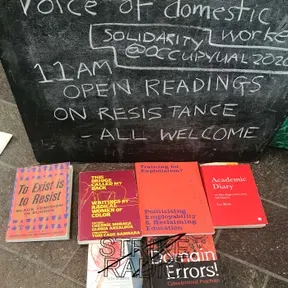 Voice of domestic
worke
SOLIDARITY
@OCCUPYUAL2020
11AM
OPEN READINGS
ON RESISTANCE
- ALL WELCOME
To Exist is
to
Resist
THIS
BRIDGE
CALLED MY
BACK
WRITINGS BY
RADICAL
WOMEN OF
COLOR
CHERRIE MORAGA
GLORIA ANZALDUA
TONI CADE BAMBARA
Training for
Exploitation?
Politicising
Employability
& Reclaiming
Education
Academic
Diary
Les Back
STRIKE
RA
Domain
Errors!
Cyberfeminist Practices